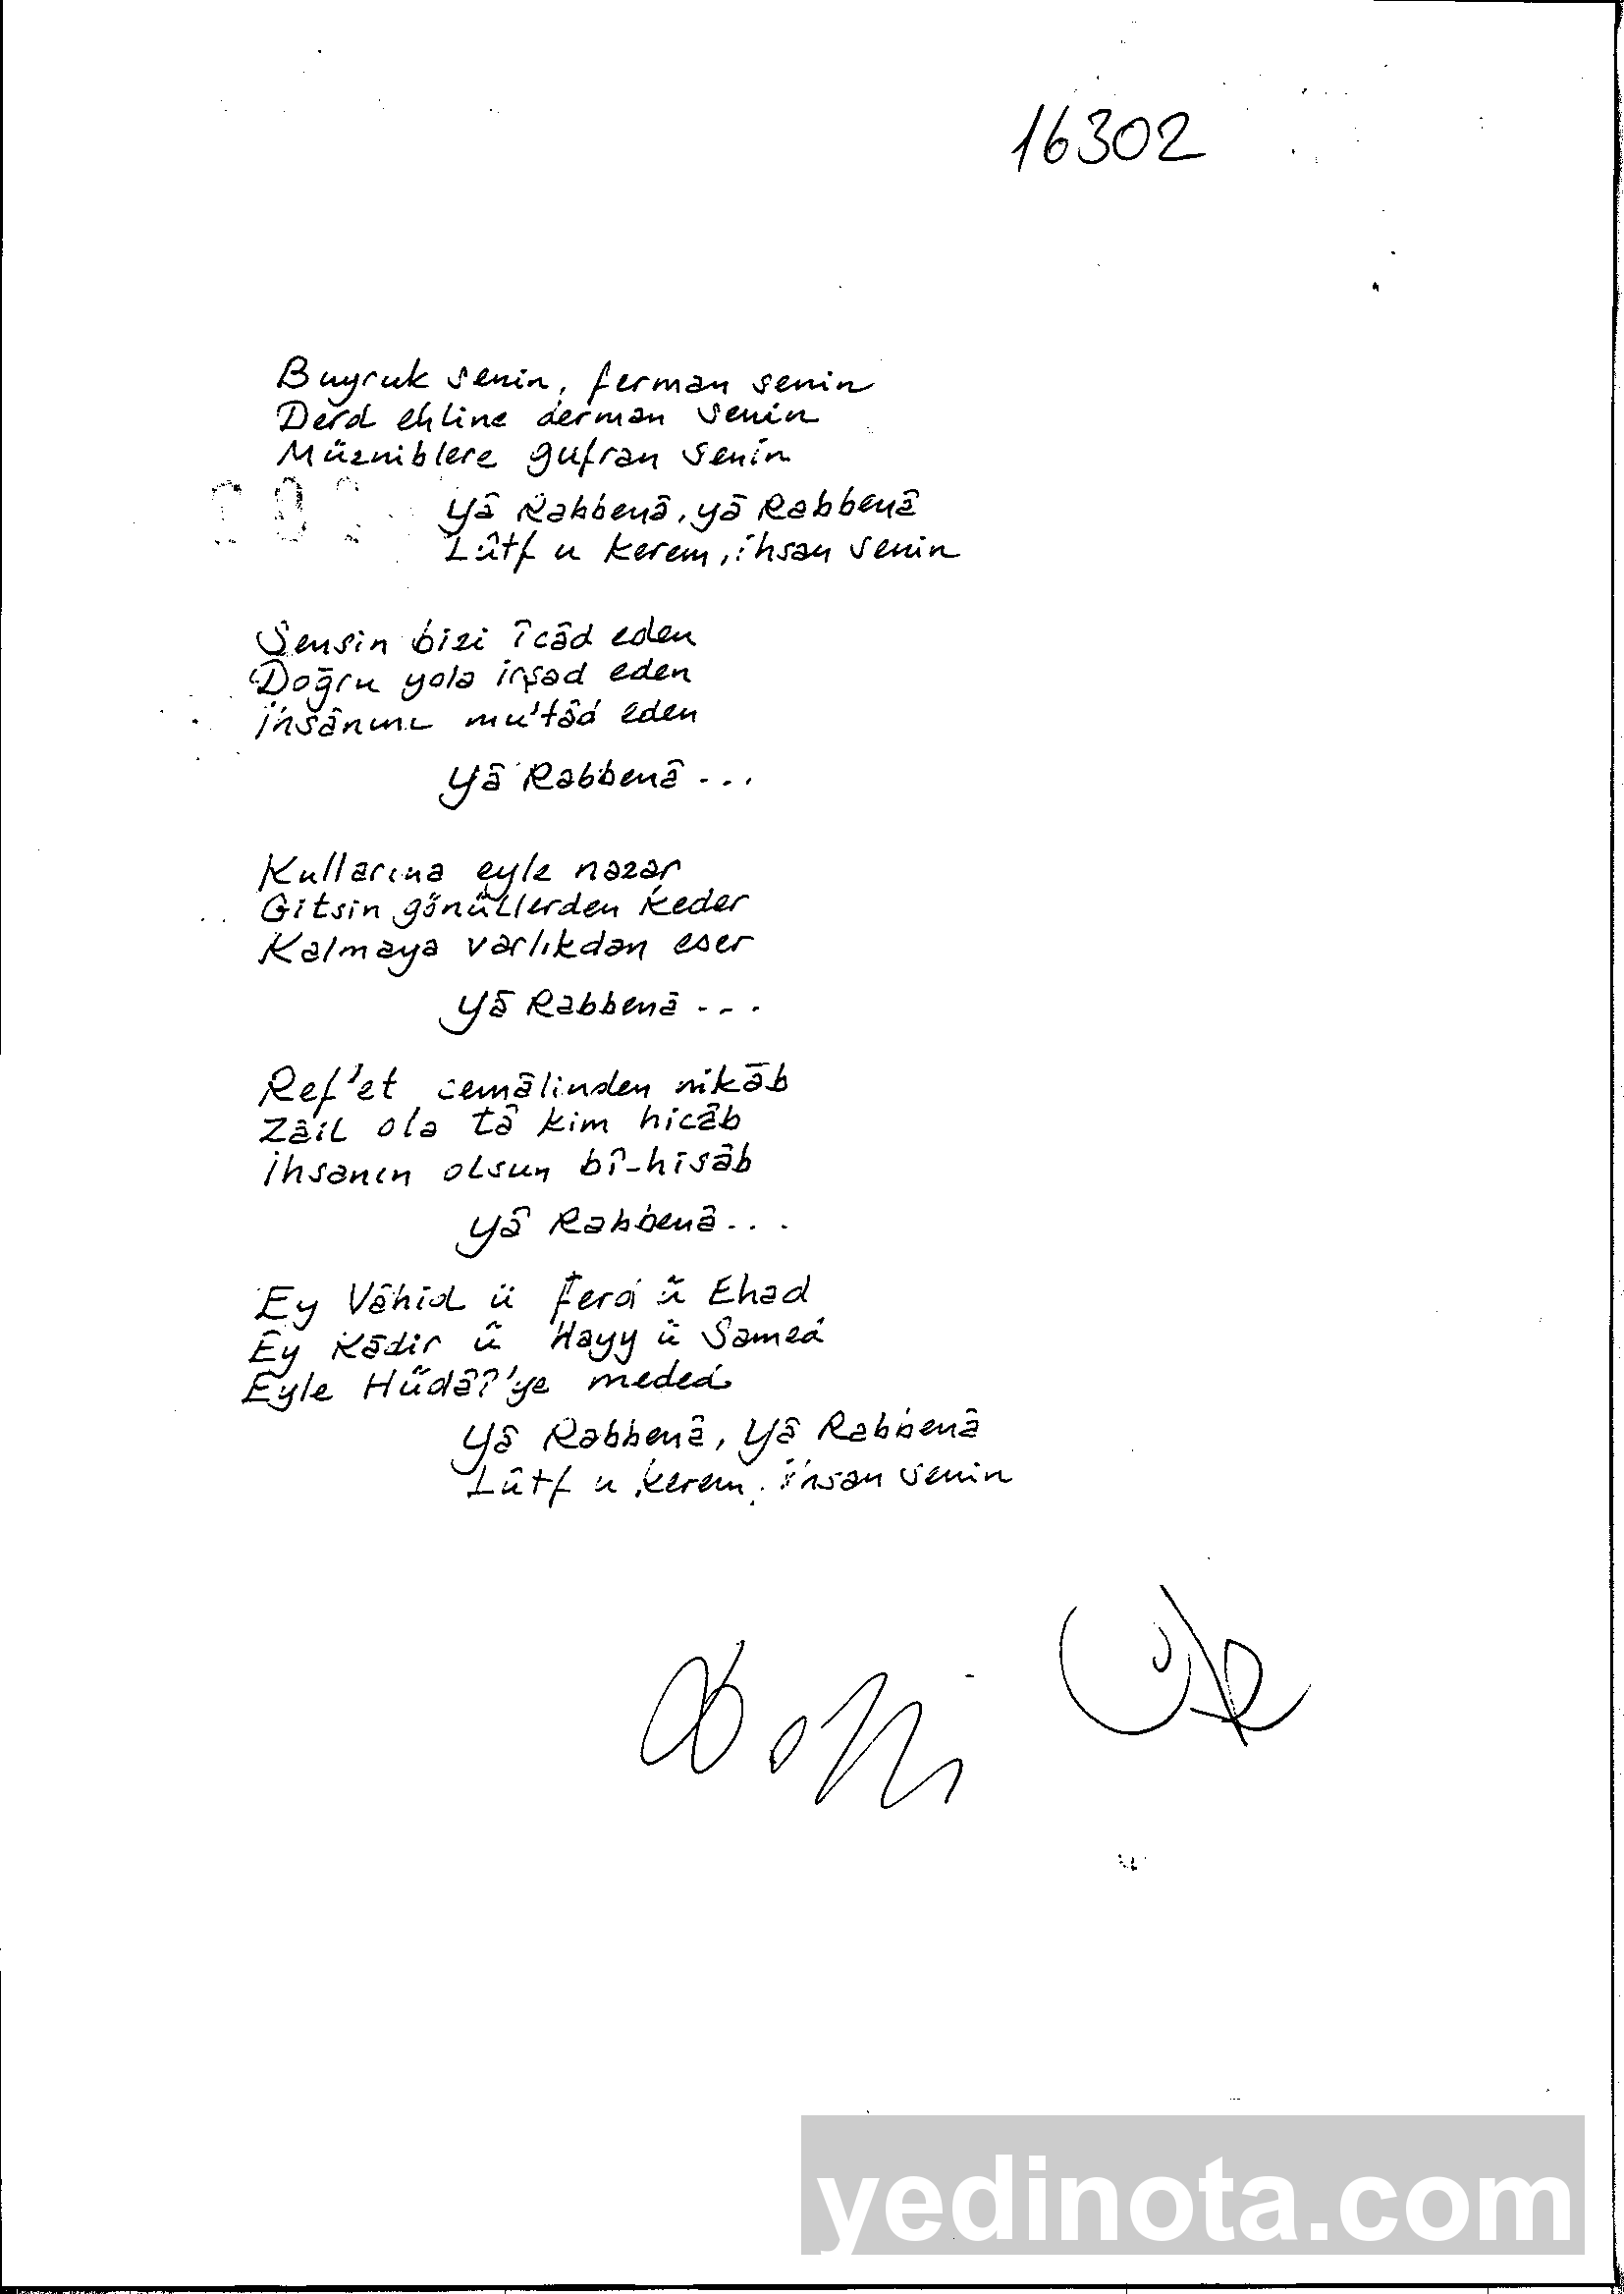 16302
Buyruk senin, ferman senin
Derd ehline derman senin
Müzniblere gufran senin
Yâ Rabbenâ, yâ Rabbenâ
Lûtf u kerem, ihsan senin
Sensin bizi îcâd eden
Doğru yola irşad eden
İhsânını mu'tâd eden
Yâ Rabbenâ ...
Kullarına eyle nazar
Gitsin gönüllerden keder
Kalmaya varlıkdan eser
Yâ Rabbenâ ...
Ref'et cemâlinden nikâb
Zâil ola tâ kim hicâb
İhsanın olsun bî-hisâb
Yâ Rabbenâ ...
Ey Vâhid ü Ferd ü Ehad
Ey Kâdir ü Hayy ü Samed
Eyle Hüdâî'ye meded
Yâ Rabbenâ, Yâ Rabbenâ
Lûtf u kerem, ihsan senin
yedinota.com